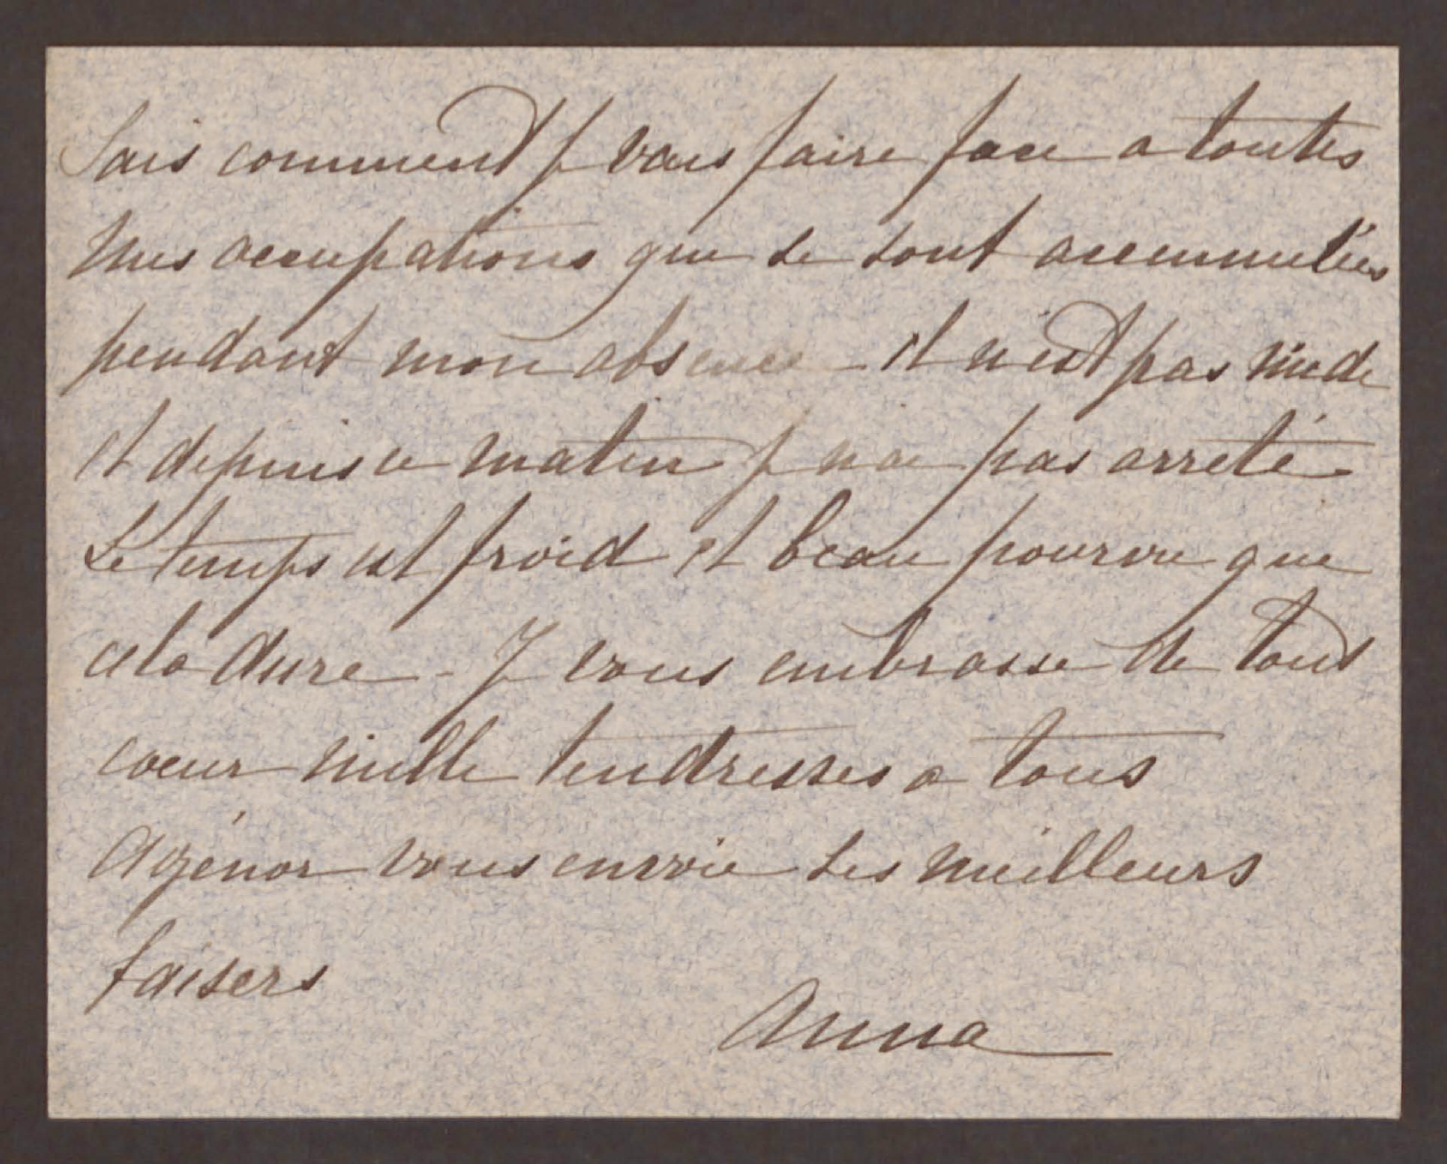 Sais comment je vais faire face a toutes
mes occupations que se sont accumulées
pendant mon absence - il n'est pas midi
et depuis ce matin je n'ai pas arrêté.
Le temps est froid et beau pourvu que
cela dure - Je vous embrasse de tout
coeur mille tendresses a tous
Agénor vous envoie ses meilleurs
baisers
Anna